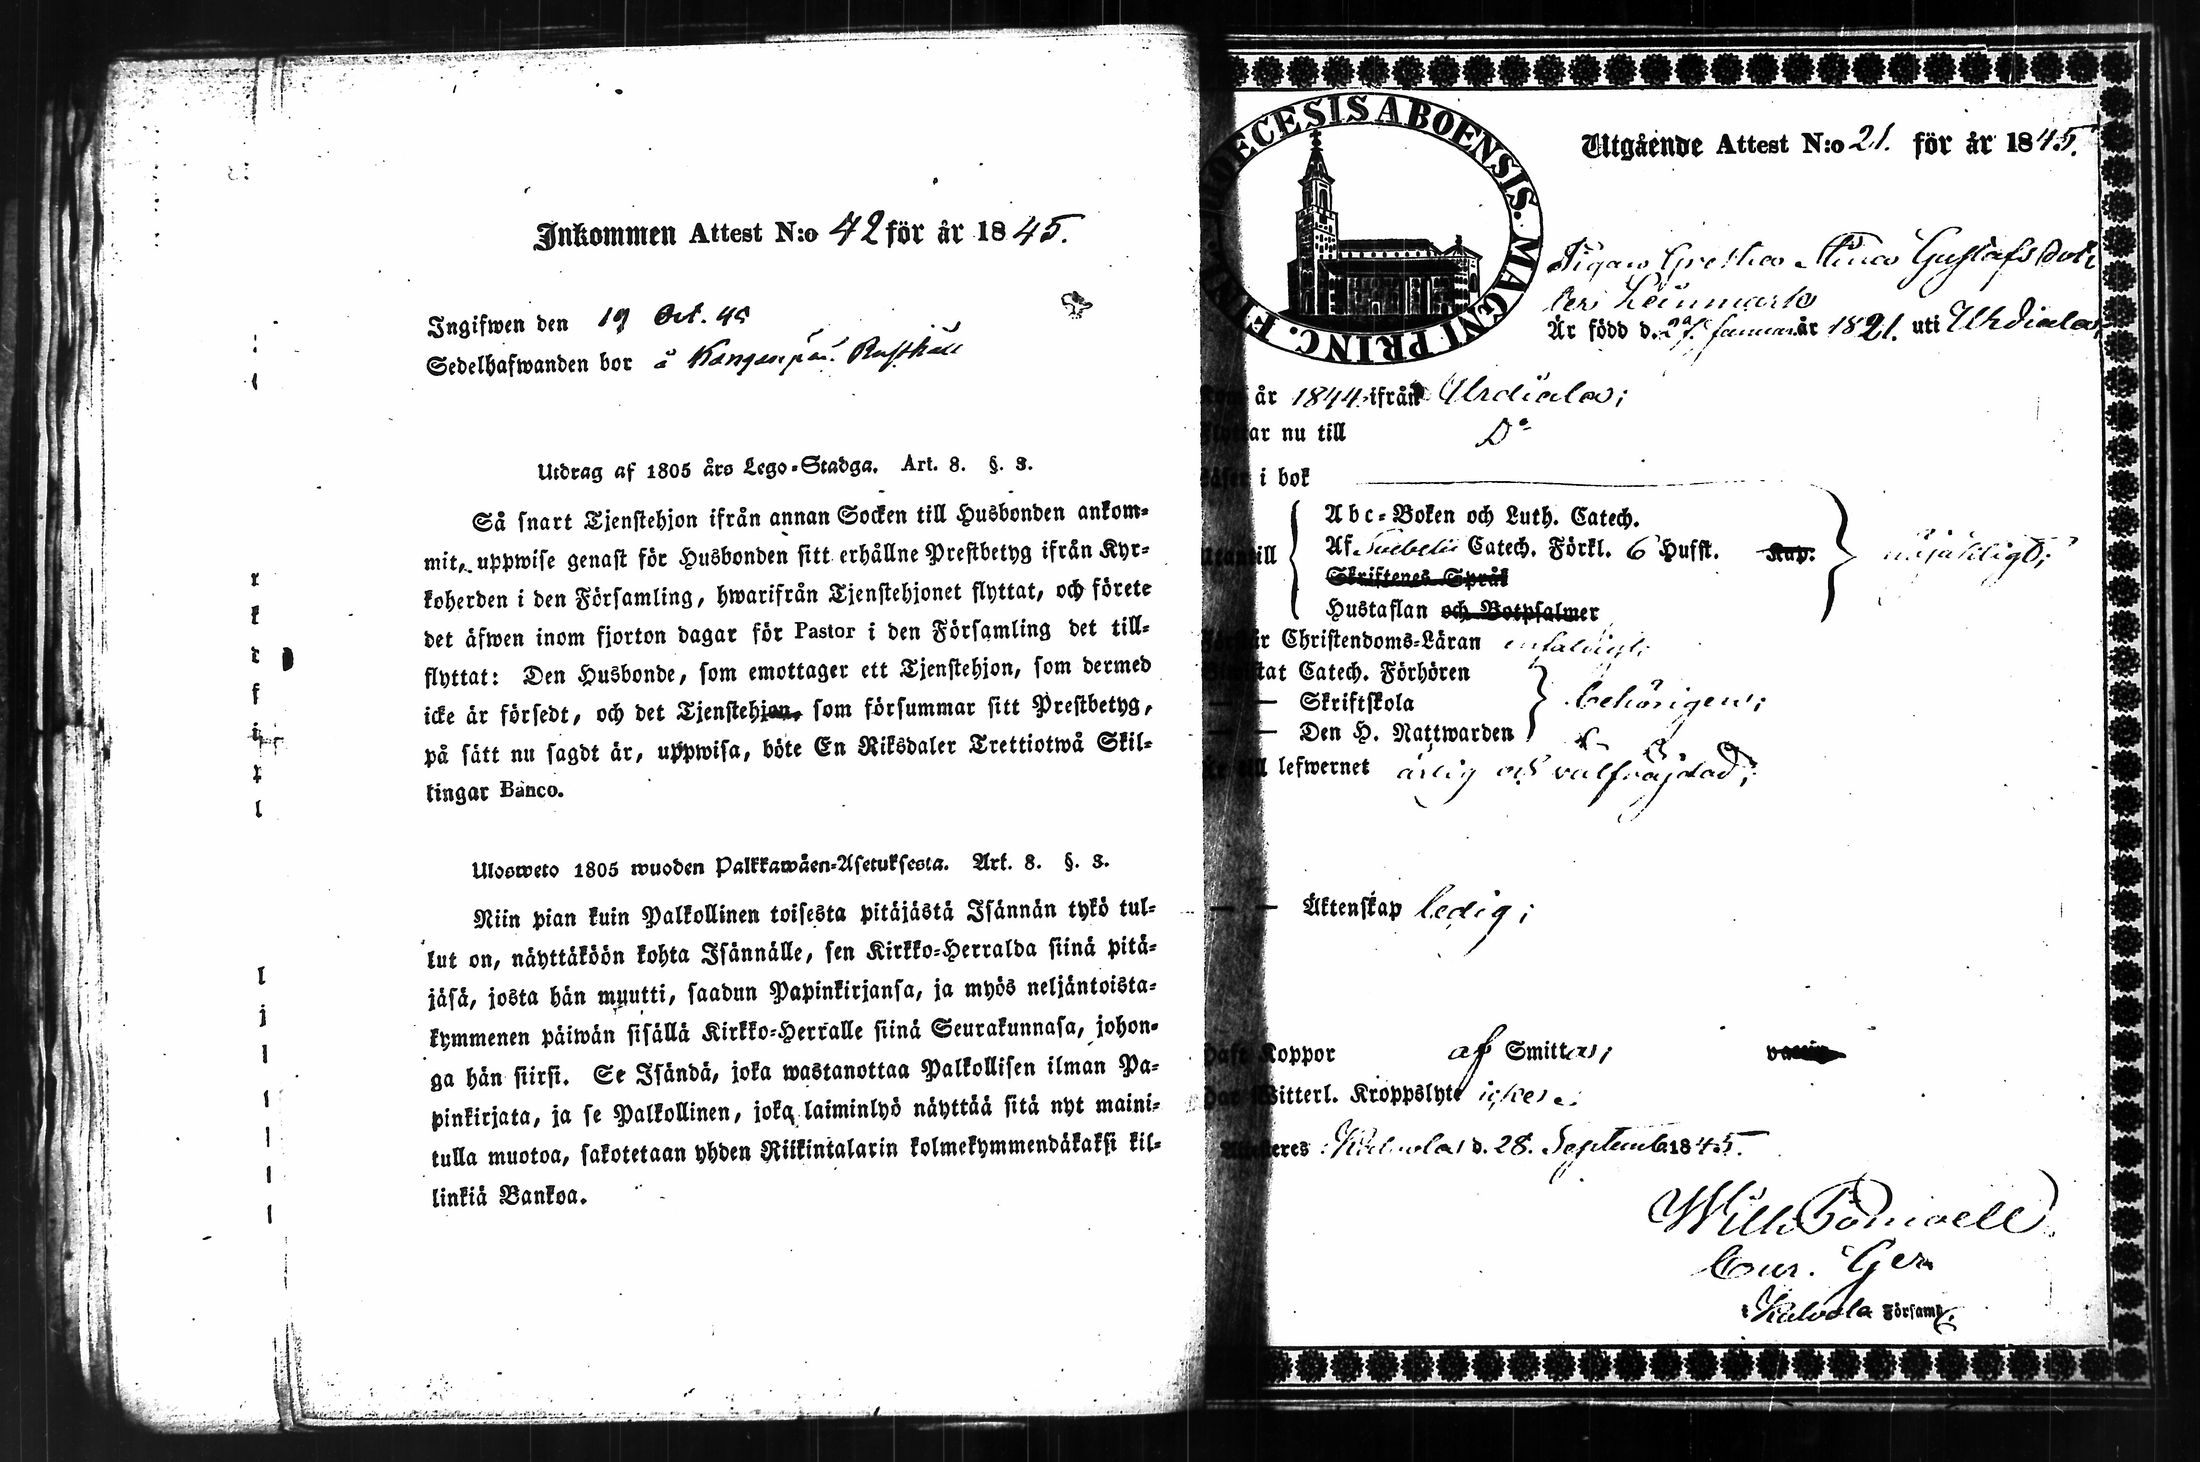 Inkommen Attest N:o 42 för år 1845.
Ingifwen den 19 Oct. 45
Sedelhafwanden bor å
Utdrag af 1805 års Lego-Stadga. Art. 8. §. 3.
Så snart Tjenstehjon ifrån annan Socken till Husbonden ankom-
mit, uppwise genast för Husbonden sitt erhållne Prestbetyg ifrån Kyr-
koherden i den Församling, hwarifrån Tjenstehjonet flyttat, och förete
det äfwen inom fjorton dagar för Pastor i den Församling det till-
flyttat: Den Husbonde, som emottager ett Tjenstehjon, som dermed
icke är försedt, och det Tjenstehjon, som försummar sitt Prestbetyg,
på sätt nu sagdt är, uppwisa, böte En Riksdaler Trettiotwå Skil-
lingar Banco.
Ulosweto 1805 wuoden Palkkawäen-Asetuksesta. Art. 8. §. 3.
Niin pian kuin Palkollinen toisesta pitäjästä Isännän tykö tul-
lut on, näyttäköön kohta Isännälle, sen Kirkko-Herralda siinä pitä-
jäsä, josta hän muutti, saadun Papinkirjansa, ja myös neljäntoista-
kymmenen päiwän sisällä Kirkko-Herralle siinä Seurakunnasa, johon-
ga hän siirsi. Se Isändä, joka wastanottaa Palkollisen ilman Pa-
pinkirjata, ja se Palkollinen, joka laiminlyö näyttää sitä nyt maini-
tulla muotoa, sakotetaan yhden Riikintalarin kolmekymmendäkaksi kil-
linkiä Bankoa.
DIOECESIS ABOENSIS. MAGNI PRINC. FINL.
Utgående Attest N:o 21. för år 1845.
Pigan Gretha Stina Gustafsdott
ter Leinmark
Är född d. 27 Januari år 1821. uti Urdiala,
Kom år 1844 ifrån Urdiala;
Flyttar nu till Do
Läser i bok
Utantill
Abc-Boken och Luth. Catech.
Af Svebelii Catech. Förkl. 6 Hufst. Kap. nöjaktligt;
Skriftenes Språk
Hustaflan och Botpsalmer
Förstår Christendoms-Läran enfaldigt;
Biwistat Catech. Förhören
— — Skriftskola behörigen;
— — Den H. Nattwarden
Är till lefwernet ärlig och välfräjdad;
— — Äktenskap ledig;
Haft Koppor af Smittan; vaccin
Har Witterl. Kroppslyte icke.
Attesteres Kalvola d. 28. Septemb 1845.
Cur. Ger
i Kalvola Församl.